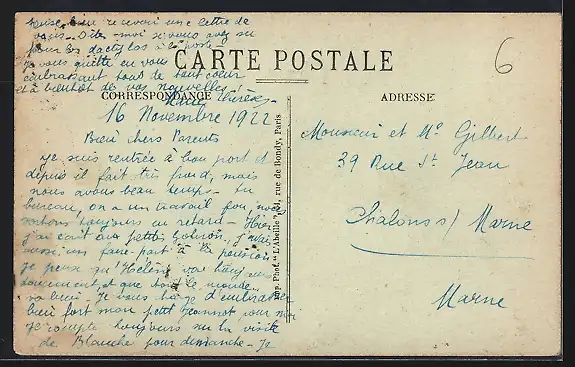 bien recevoir une lettre de
vous. Dites moi si vous avez vu
pour les dactylos à la poste.
Je vous quitte en vous
embrassant tous de tout cœur
et à bientôt de vos nouvelles
Thérèse
CARTE POSTALE
6
CORRESPONDANCE
ADRESSE
16 Novembre 1922
Bien chers Parents
Je suis rentrée à bon port et
depuis il fait très froid, mais
nous avons beau temps. Au
bureau, on a un travail fou, nous
sortons toujours en retard - Hier
j'ai écrit aux petits
aussi un faire-part à la pension
je pense qu'Hélène va touj.
doucement, et que tout le monde
va bien. Je vous charge d'embrasser
bien fort mon petit Jeannot pour moi
Je compte toujours sur la visite
de Blanche pour dimanche - Je
Imp. Phot. "L'Abeille", rue de Bondy, Paris
Monsieur et Me Gilbert
39 Rue St Jean
Chalons s/ Marne
Marne